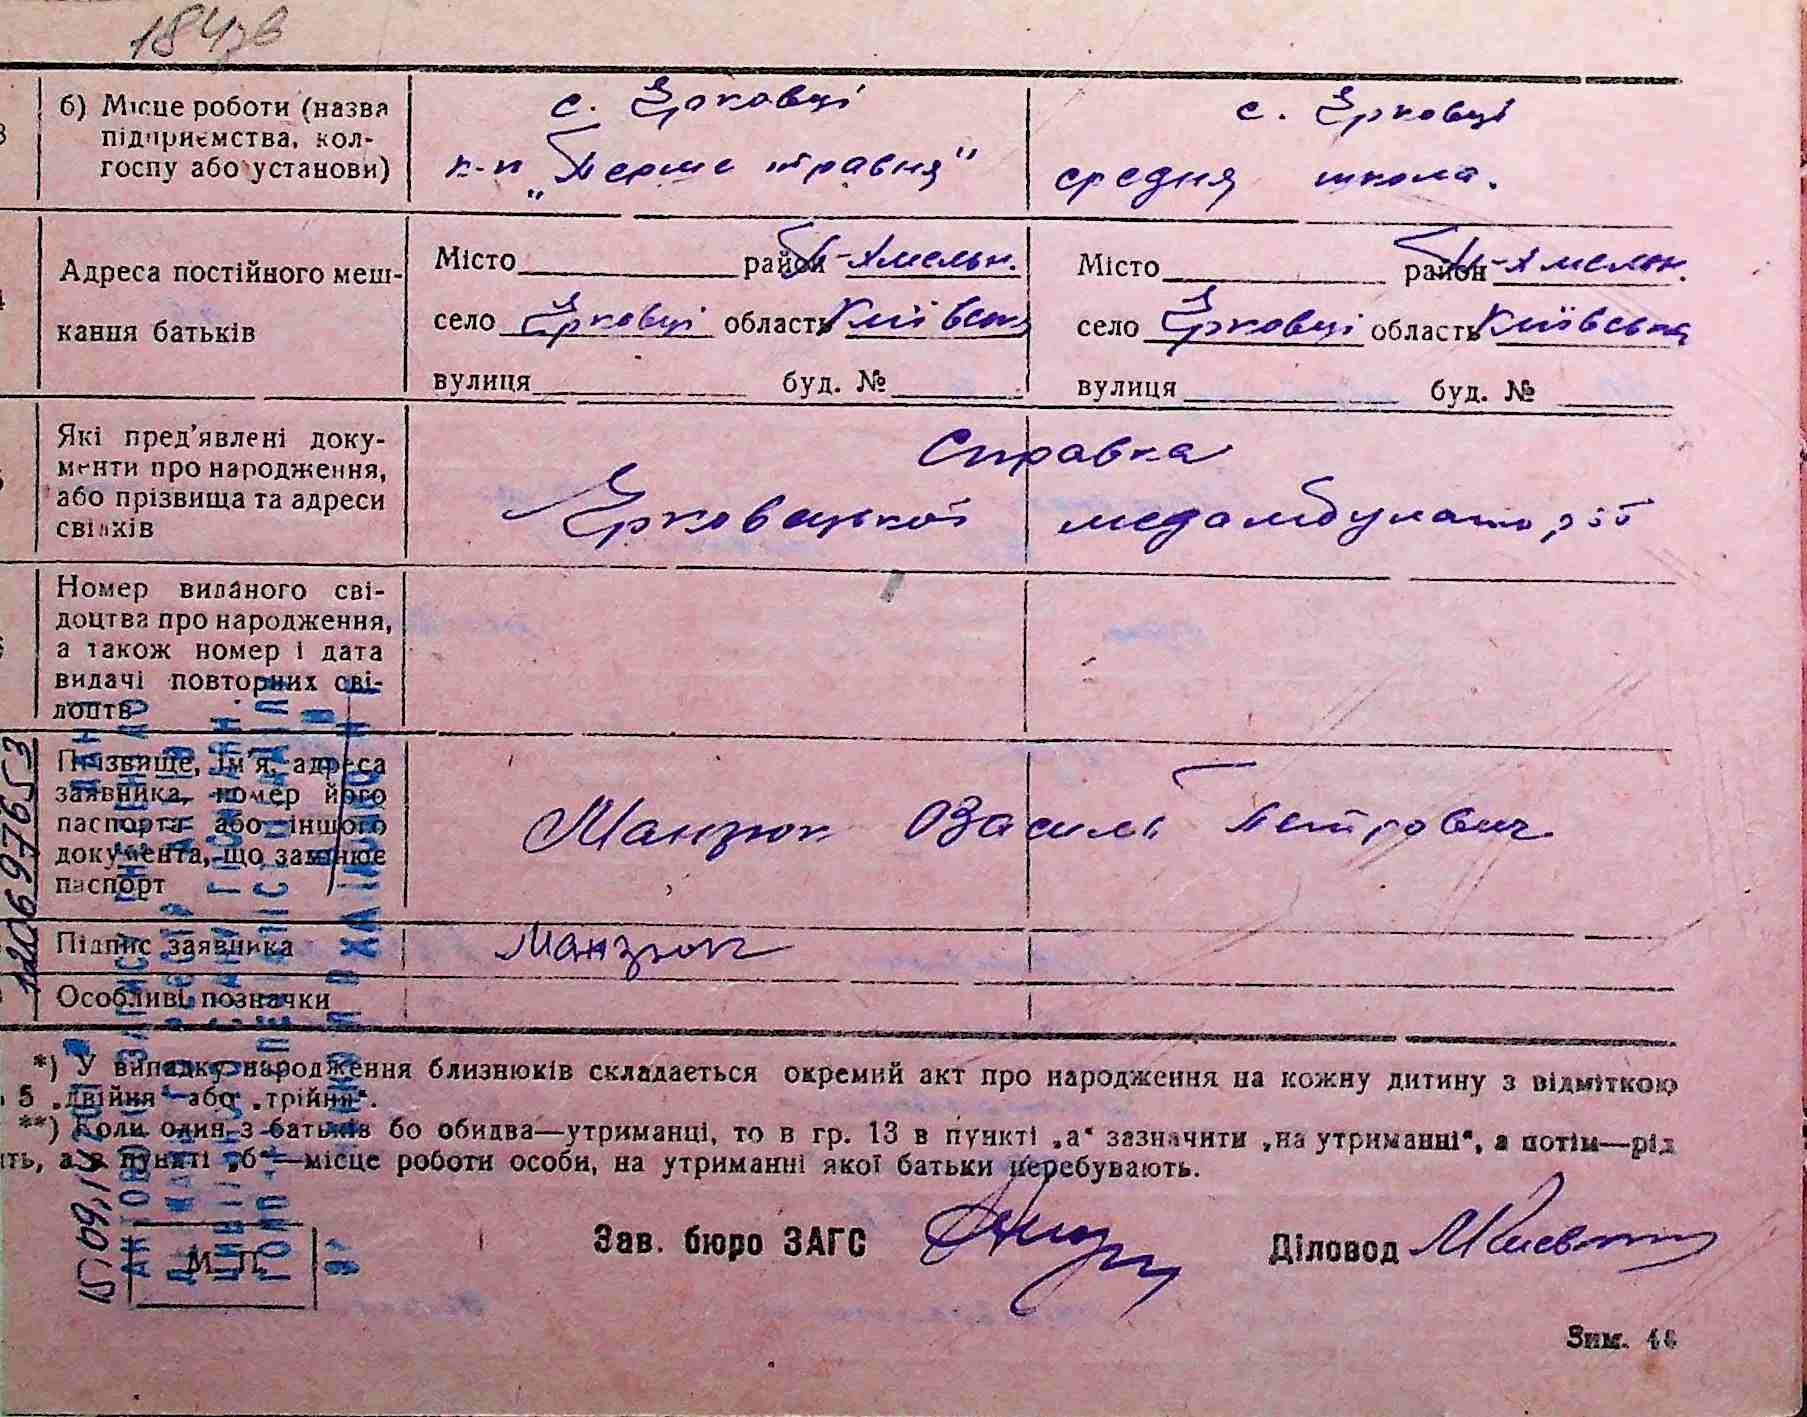 184зв
б) Місце роботи (назва підприємства, колгоспу або установи)
с. Єрковці
к-п „Перше травня"
с. Єрковці
средня школа.
Адреса постійного мешкання батьків
Місто район П-Хмельн.
село Єрковці область Київська
вулиця буд. №
Місто район П-Хмельн.
село Єрковці область Київська
вулиця буд. №
Які пред'явлені документи про народження, або прізвища та адреси свідків
Справка
Єрковецької медамбулаторії
Номер виданого свідоцтва про народження, а також номер і дата видачі повторних свідоцтв
Прізвище, ім'я, адреса заявника, номер його паспорта або іншого документа, що замінює паспорт
Манзюк Василь Петрович
Підпис заявника
Манзюк
Особливі позначки
*) У випадку народження близнюків складається окремий акт про народження на кожну дитину з відміткою
5 „двійня" або „трійня".
**) Коли один з батьків бо обидва—утриманці, то в гр. 13 в пункті „а" зазначити „на утриманні", а потім—рід
ть, а в пункті „б"—місце роботи особи, на утриманні якої батьки перебувають.
М. П.
Зав. бюро ЗАГС
Діловод
Зим.